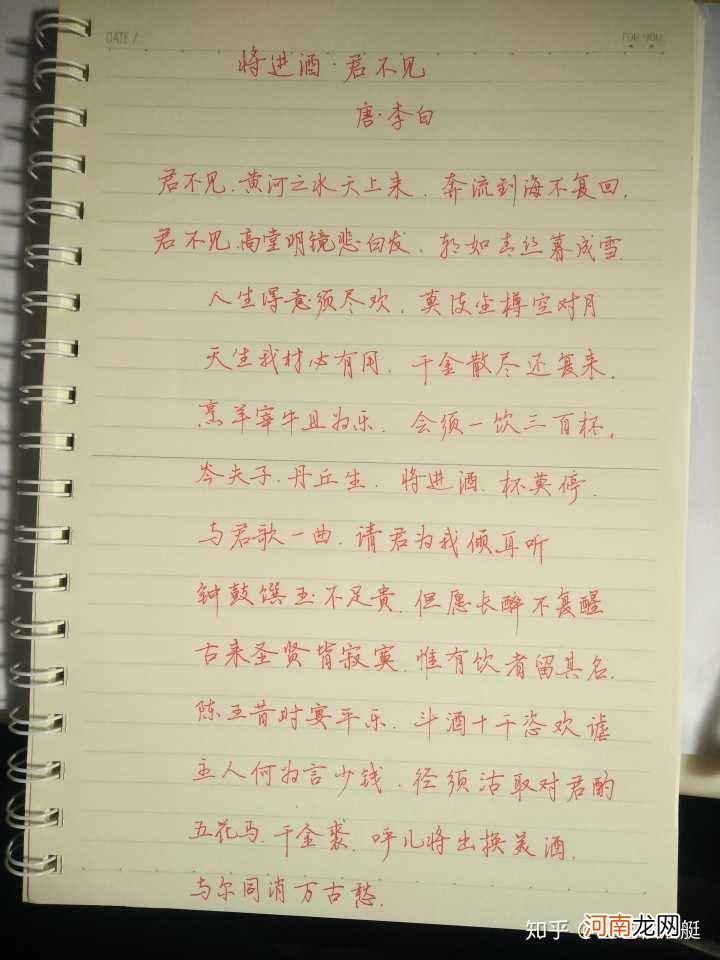 DATE /
FOR YOU
将进酒·君不见
唐·李白
君不见.黄河之水天上来.奔流到海不复回.
君不见.高堂明镜悲白发.朝如青丝暮成雪.
人生得意须尽欢.莫使金樽空对月
天生我材必有用.千金散尽还复来.
烹羊宰牛且为乐.会须一饮三百杯.
岑夫子.丹丘生.将进酒.杯莫停.
与君歌一曲.请君为我倾耳听
钟鼓馔玉不足贵.但愿长醉不复醒
古来圣贤皆寂寞.惟有饮者留其名.
陈王昔时宴平乐.斗酒十千恣欢谑
主人何为言少钱.径须沽取对君酌
五花马.千金裘.呼儿将出换美酒.
与尔同消万古愁.
知乎
河南龙网
艇